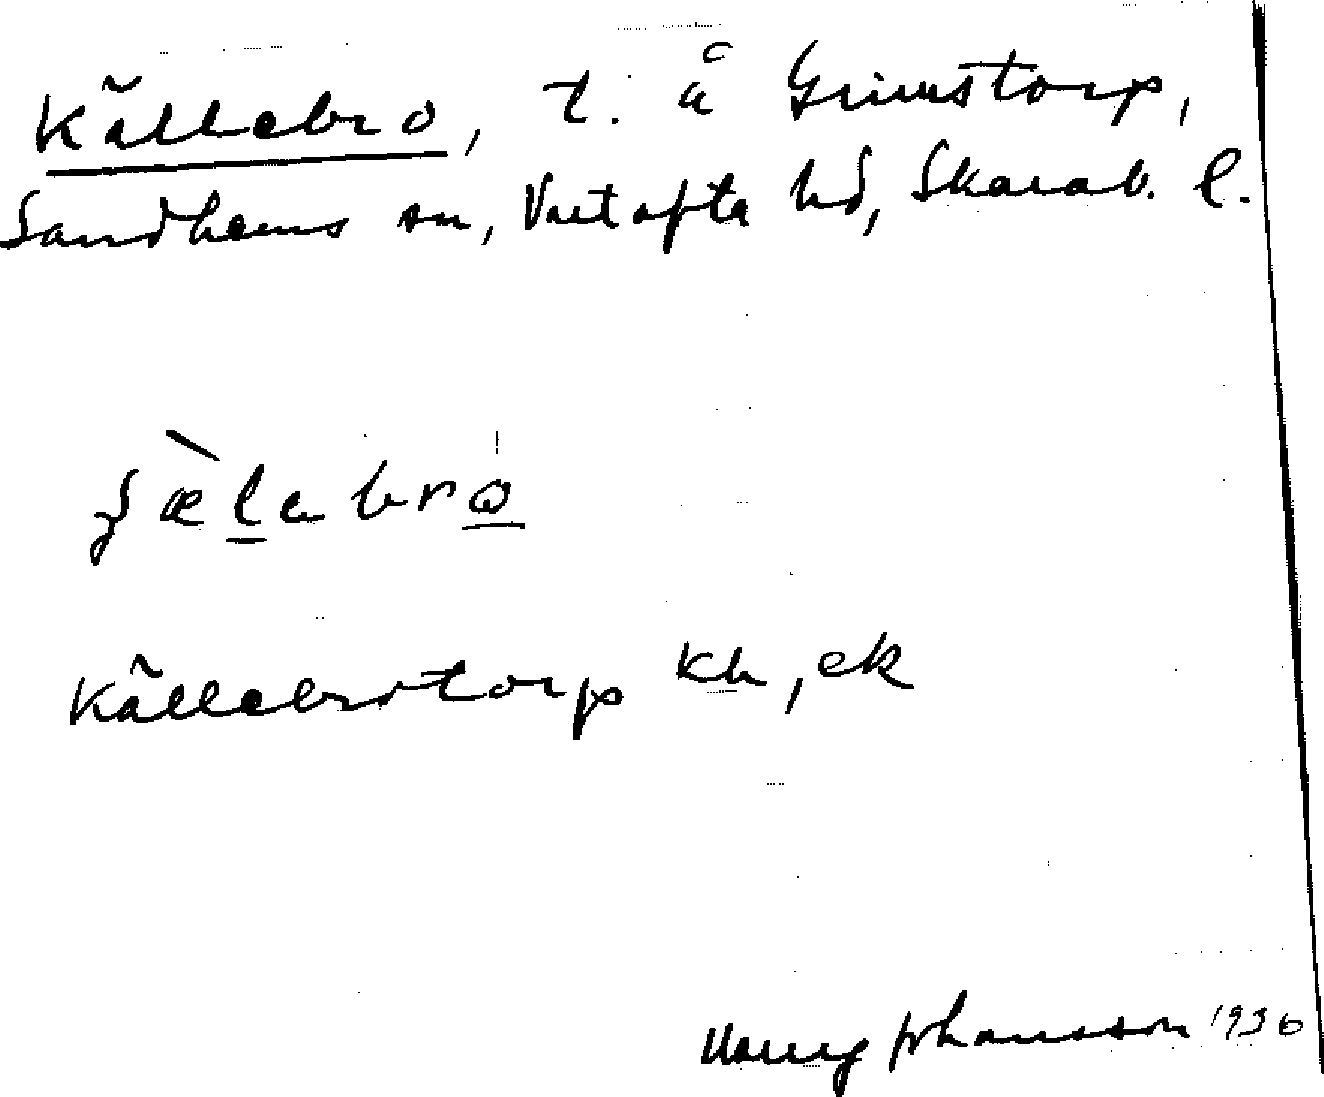 Källebro, t. å Grimstorp,
Sandhems sn, Vartofta hd, Skarab. l.
Källebrotorp kh, ek
Harry Johansson 1936